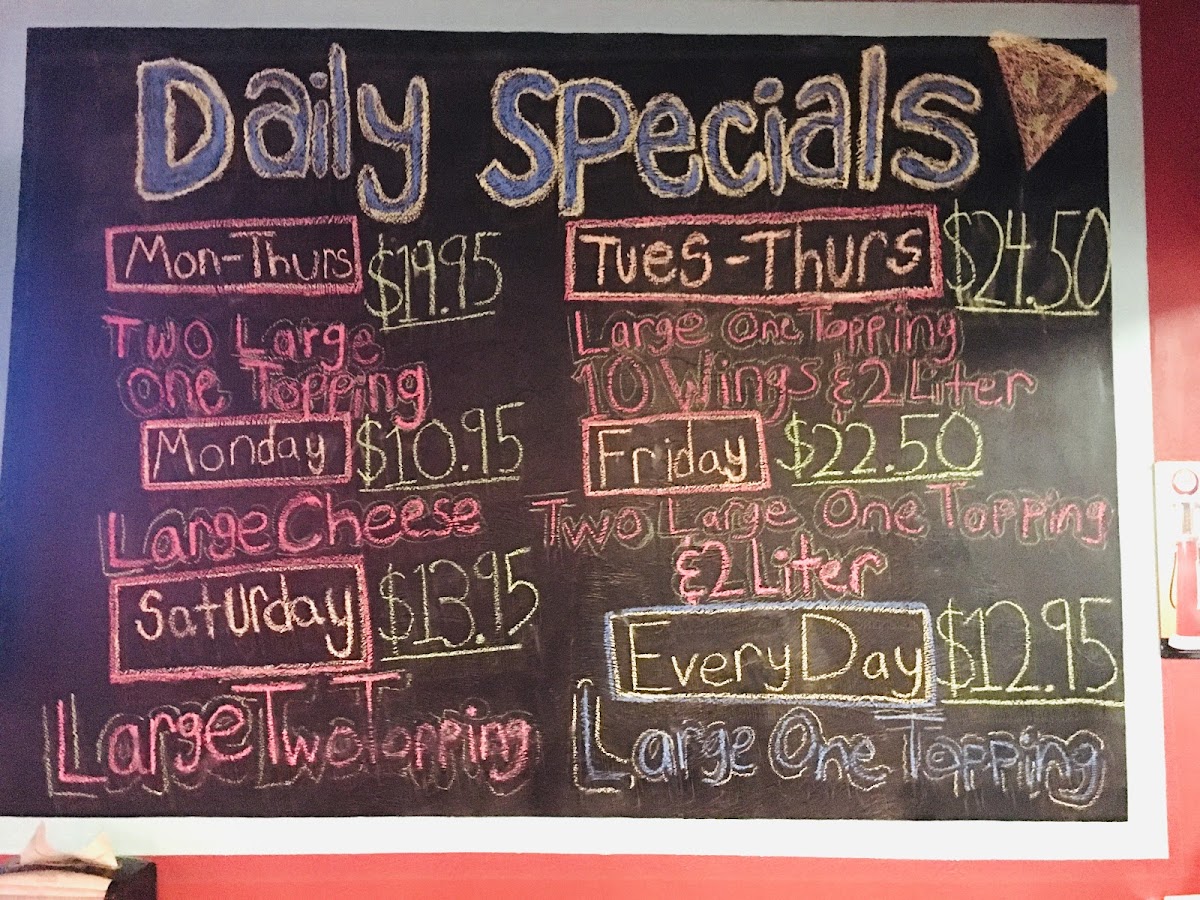 Daily Specials
Mon-Thurs $19.95
Two Large
One Topping
Monday $10.95
Large Cheese
Saturday $13.95
Large Two Topping
Tues-Thurs $24.50
Large One Topping
10 Wings & 2 Liter
Friday $22.50
Two Large One Topping
& 2 Liter
Every Day $12.95
Large One Topping